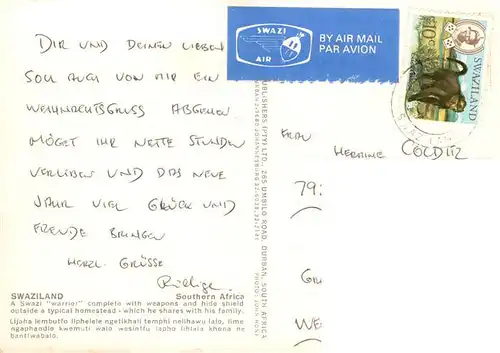 DIR UND DEINEN LIEBEN
SOLL AUCH VON MIR EIN
WEIHNACHTSGRUSS ABGEHEN
MÖGET IHR NETTE STUNDEN
VERLEBEN UND DAS NEUE
JAHR VIEL GLÜCK UND
FREUDE BRINGEN
HERZL. GRÜSSE
SWAZILAND Southern Africa
A Swazi "warrior" complete with weapons and hide shield
outside a typical homestead - which he shares with his family.
Lijaha lembutfo liphelele ngetikhali temphi nelihawu lalo, lime
ngaphandle kwemuti walo wesintfu lapho lihlala khona ne
bantiwabalo.
SWAZI
AIR
BY AIR MAIL
PAR AVION
SWAZILAND
PUBLISHERS (PTY) LTD., 265 UMBILO ROAD, DURBAN, SOUTH AFRICA
FRAU
HERMINE COLDITZ
79